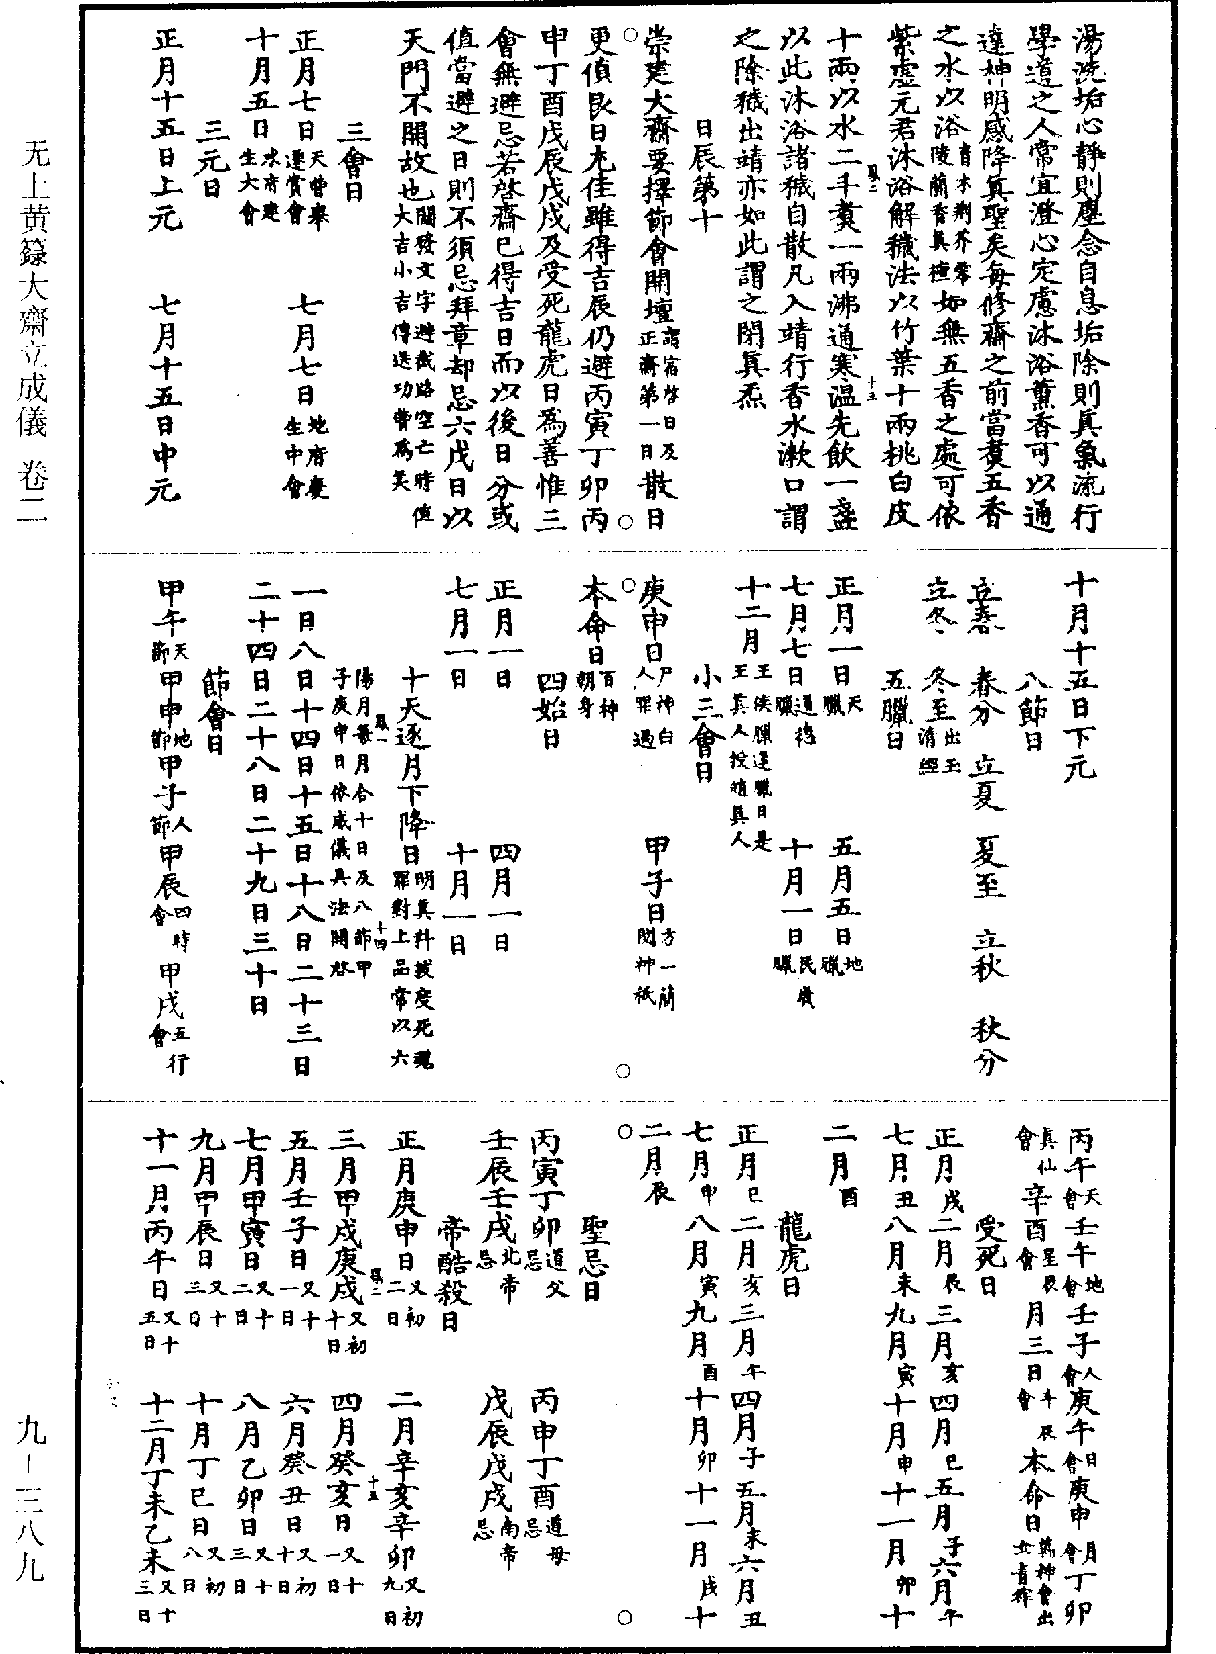 湯洗垢心靜則塵念自息垢除則真氣流行
學道之人常宜澄心定慮沐浴薰香可以通
達神明感降真聖矣每修齋之前當煑五香
之水以浴青木荆芥零陵蘭香真檀如無五香之處可依
紫虛元君沐浴解穢法以竹葉十兩桃白皮
十兩以水二斗煑一兩沸通寒溫先飲一盞
以此沐浴諸穢自散凡入靖行香水漱口謂
之除穢出靖亦如此謂之閉真炁
日辰第十
崇建大齋要擇節會開壇謂宿啓日及正齋第一日散日
更值良日尤佳雖得吉辰仍避丙寅丁卯丙
申丁酉戊辰戊戌及受死龍虎日爲善惟三
會無避忌若啓齋已得吉日而以後日分或
值當避之日則不須忌拜章却忌六戊日以
天門不開故也關發文字避截路空亡時值大吉小吉傳送功曹爲美
三會日
正月七日天曹舉遷賞會 七月七日地府慶生中會
十月五日水府建生大會
三元日
正月十五日上元 七月十五日中元
十月十五日下元
八節日
立春 春分 立夏 夏至 立秋 秋分
立冬 冬至出玉清經
五臘日
正月一日天臘 五月五日地臘
七月七日道德臘 十月一日民歲臘
十二月王侯臘還臘日是王真人授趙真人
小三會日
庚申日尸神白人罪過 甲子日方一簡閱神祇
本命日百神朝身
四始日
正月一日 四月一日
七月一日 十月一日
十天逐月下降日明真科拔度死魂罪對上品常以六
陽月每月合十日及八節甲子庚申日依威儀具法開啓
一日八日十四日十五日十八日二十三日
二十四日二十八日二十九日三十日
節會日
甲午天節甲申地節甲子人節甲辰四時會甲戌五行會
丙午天會壬午地會壬子人會庚午日會庚申月會丁卯
真仙會辛酉星辰會月三日斗辰會本命日萬神會出女青律
受死日
正月戌二月辰三月亥四月巳五月子六月午
七月丑八月未九月寅十月申十一月卯十
二月酉
龍虎日
正月巳二月亥三月午四月子五月未六月丑
七月申八月寅九月酉十月卯十一月戌十
二月辰
聖忌日
丙寅丁卯道父忌 丙申丁酉道母忌
壬辰壬戌北帝忌 戊辰戊戌南帝忌
帝酷殺日
正月庚申日又初二日 二月辛亥辛卯又初九日
三月甲戌庚戌又初十日 四月癸亥日又十一日
五月壬子日又十一日 六月癸丑日又初十日
七月甲寅日又十二日 八月乙卯日又十三日
九月甲辰日又十三日 十月丁巳日又初八日
十一月丙午日又十五日 十二月丁未乙未又十三日
无上黄籙大齋立成儀 卷二
九－三八九